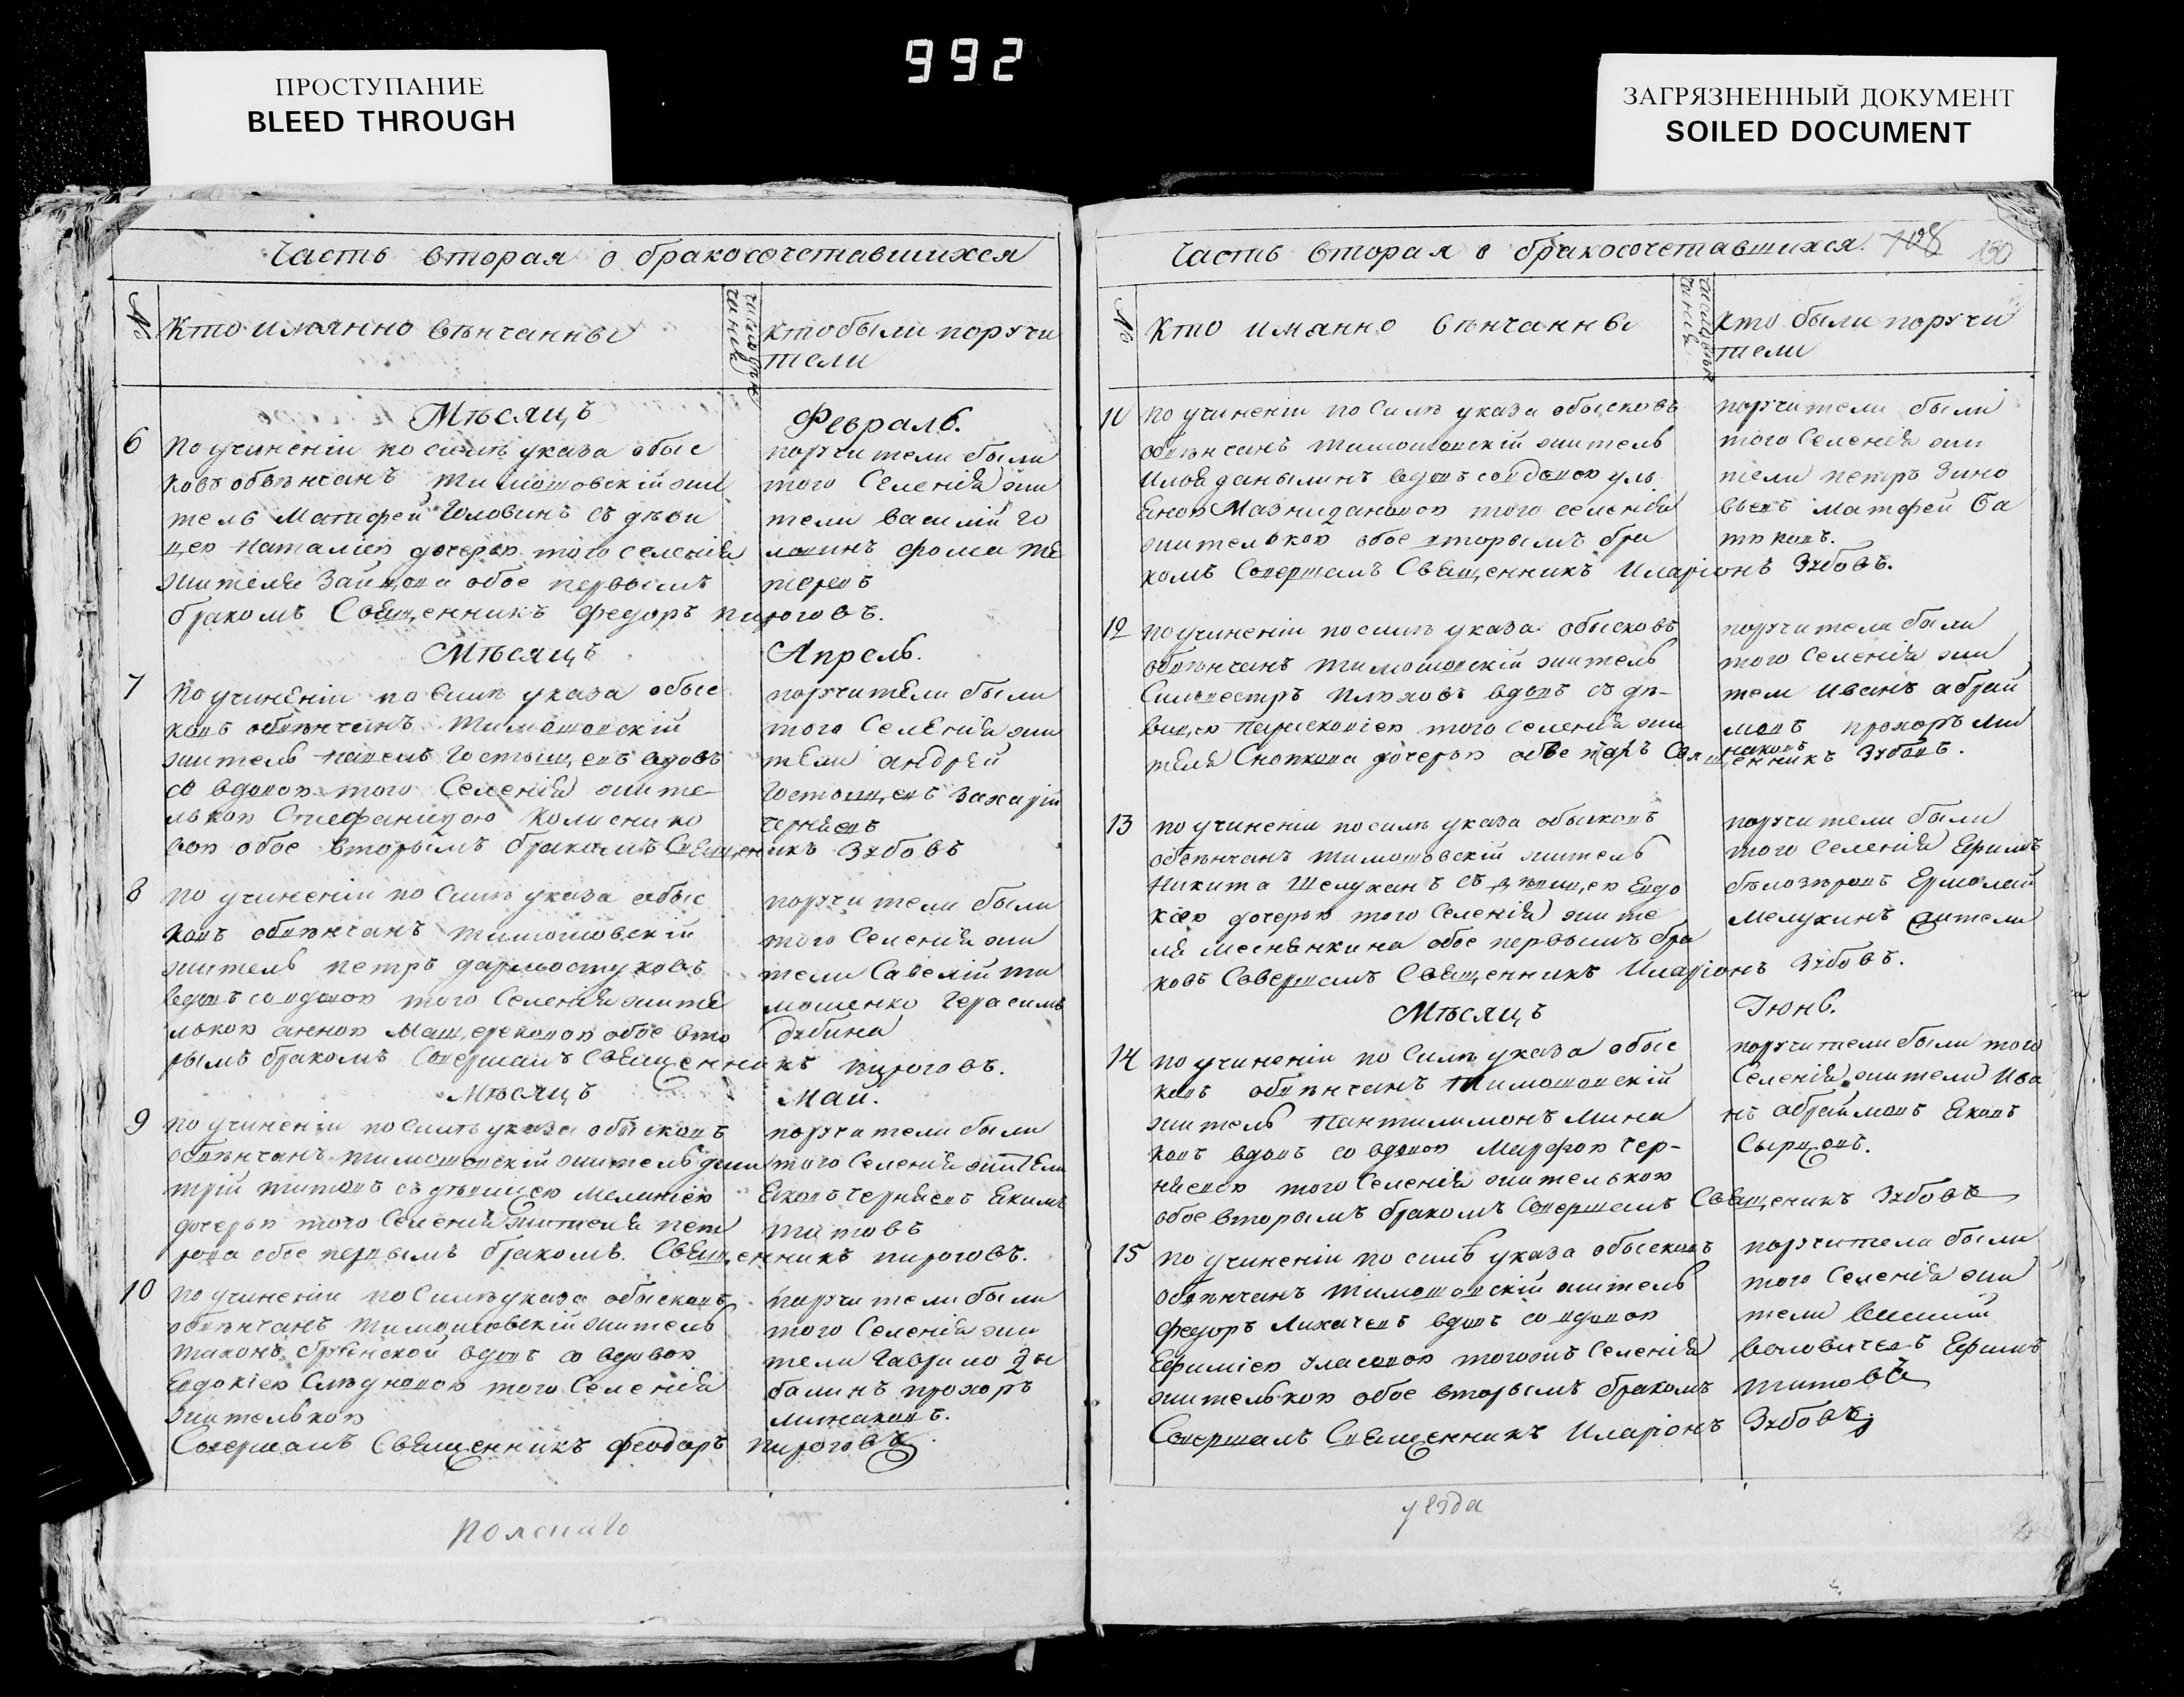 992
ПРОСТУПАНИЕ
BLEED THROUGH
ЗАГРЯЗНЕННЫЙ ДОКУМЕНТ
SOILED DOCUMENT
Часть вторая о бракосочетавшихся
№
Кто имянно вѣнчанны
кто были поручи
тели
Мѣсяцъ Февраль.
6
По учиненіи по силѣ указа обыс
ковъ обвѣнчанъ Тимошовскій жи
тель Матфей Головинъ съ дѣви
цею Наталіею дочерью того селенія
жителя обое первымъ
бракомъ Священникъ Федоръ Пироговъ.
поручители были
того Селенія жи
тели Василій Го
ловинъ Фома
Мѣсяцъ Апрель.
7
По учиненіи по силѣ указа обыс
ковъ обвѣнчанъ Тимошовскій
житель Павелъ Гостищевъ вдовъ
со вдовою того Селенія жите
лькою Стефанидою Колеснико
вою обое вторымъ бракомъ Священникъ Зубовъ
поручители были
того Селенія жи
тели Андрей
Гостищевъ Захарій
Черняевъ
8
По учиненіи по силѣ указа обыс
ковъ обвѣнчанъ Тимошовскій
житель Петръ Дармостуковъ
вдовъ со вдовою того Селенія жите
лькою Анною обое вто
рымъ бракомъ Совершалъ Священникъ Пироговъ.
поручители были
того Селенія жи
тели Савелій Ти
мошенко Герасимъ
Дубина
Мѣсяцъ Май.
9
По учиненіи по силѣ указа обысковъ
обвѣнчанъ Тимошовскій житель Дми
трій Титовъ съ дѣвицею Меланіею
дочерью того Селенія жителя Пет
рова обое первымъ бракомъ. Священникъ Пироговъ.
поручители были
того Селенія жители
Яковъ Черняевъ Екимъ
Титовъ
10
По учиненіи по силѣ указа обысковъ
обвѣнчанъ Тимошовскій житель
вдовъ со вдовою
Евдокіею того Селенія
жителькою
Совершалъ Священникъ Феодоръ Пироговъ
поручители были
того Селенія жи
тели Гаврило Ды
балинъ Прохоръ
Минаковъ.
Часть вторая о бракосочетавшихся. 108 150
№
Кто имянно вѣнчанны
Кто были поручи
тели
11
По учиненіи по силѣ указа обысковъ
обвѣнчанъ Тимошовскій житель
Илья Данылинъ вдовъ со вдовою Уль
того селенія
жителькою обое вторымъ бра
комъ Совершалъ Священникъ Иларіонъ Зубовъ.
поручители были
того Селенія жи
тели Петръ Зино
вьевъ Матфей
12
По учиненіи по силѣ указа обысковъ
обвѣнчанъ Тимошовскій житель
Сильвестръ вдовъ съ дѣ-
вицею Парасковіею того селенія жи
теля дочерью Священникъ Зубовъ.
поручители были
того Селенія жи
тели Иванъ Абраи
мовъ Прохоръ Ми
наковъ
13
По учиненіи по силѣ указа обысковъ
обвѣнчанъ Тимошовскій житель
Никита съ дѣвицею Евдо
кіею дочерью того Селенія жите
ля обое первымъ бра
ковъ Совершалъ Священникъ Иларіонъ Зубовъ.
поручители были
того Селенія Ефимъ
Ермолай
жители
Мѣсяцъ Іюнь.
14
По учиненіи по силѣ указа обыс
ковъ обвѣнчанъ Тимошовскій
житель Пантилимонъ Мина
ковъ вдовъ со вдовою Марфою Чер-
няевою того Селенія жителькою
обое вторымъ бракомъ Совершалъ Священикъ Зубовъ
поручители были того
Селенія жители Ива
нъ Абраимовъ Яковъ
Сырцовъ.
15
По учиненіи по силѣ указа обысковъ
обвѣнчанъ Тимошовскій житель
Федоръ Лихачевъ вдовъ со вдовою
Ефиміею Уласовою тогожъ Селенія
жителькою обое вторымъ бракомъ
Совершалъ Священникъ Иларіонъ Зубовъ
поручители были
того Селенія жи
тели
Ефимъ
Титовъ
уезда